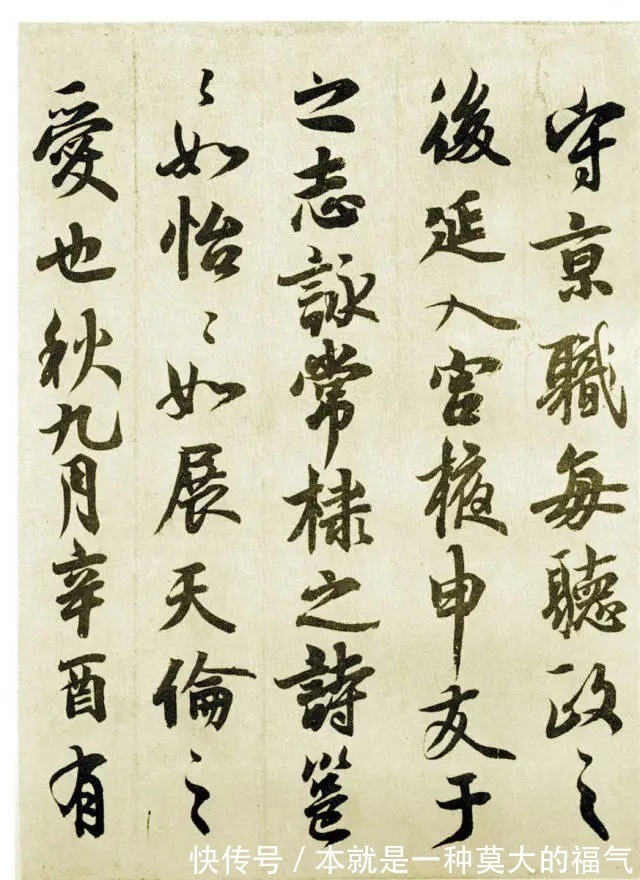 守京職每聽政之
後延入宮掖申友于
之志詠常棣之詩邕
〻如怡〻如展天倫之
愛也秋九月辛酉有
快传号/本就是一种莫大的福气